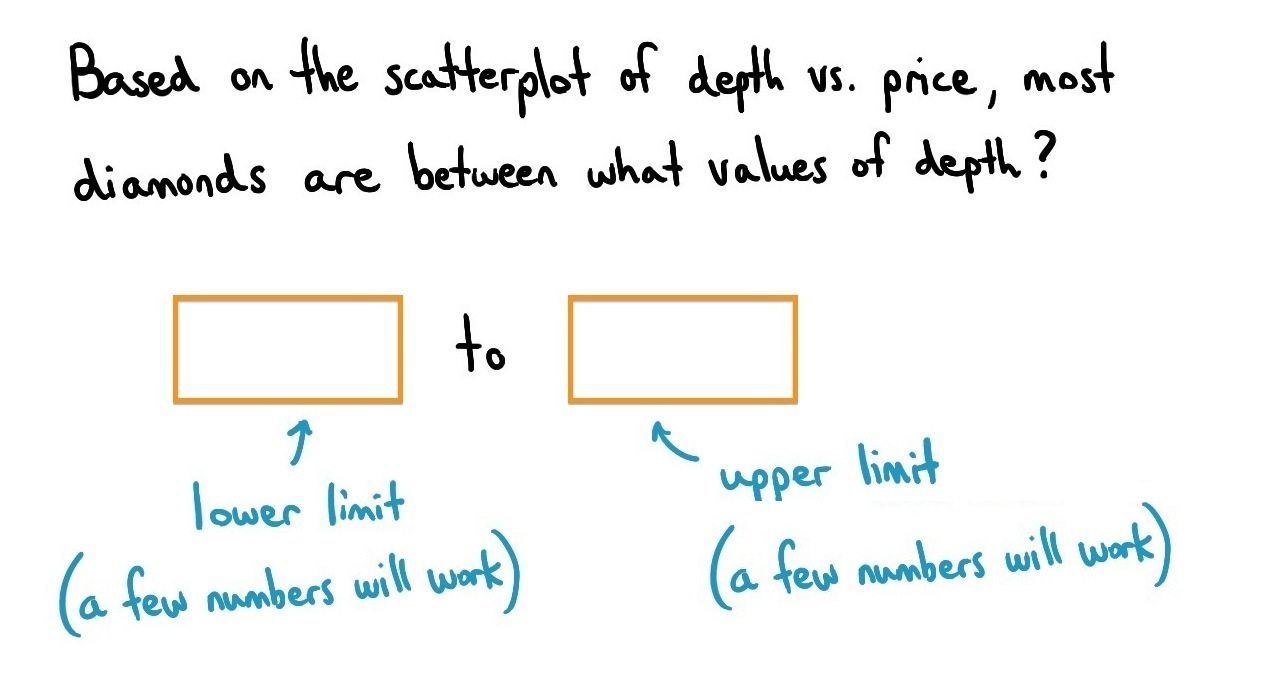 Based on the scatterplot of depth vs. price, most
diamonds are between what values of depth?
to
lower limit
(a few numbers will work)
upper limit
(a few numbers will work)